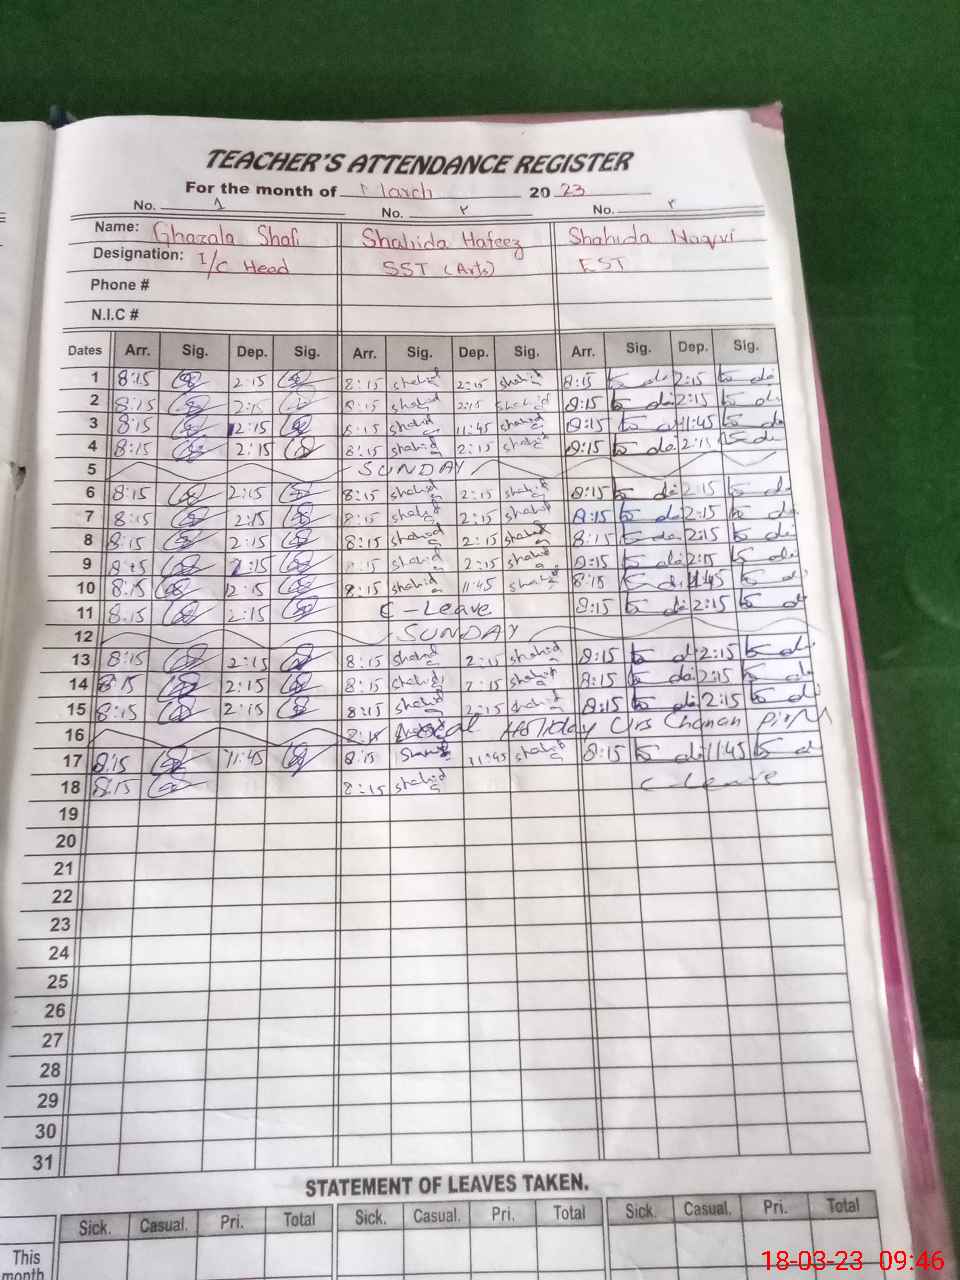 TEACHER'S ATTENDANCE REGISTER
For the month of March 2023
No. 1 No. ۲ No. ۳
Name: Ghazala Shafi Shahida Hafeez Shahida Naqvi
Designation: I/C Head SST (Arts) EST
Phone #
N.I.C #
Dates Arr. Sig. Dep. Sig. Arr. Sig. Dep. Sig. Arr. Sig. Dep. Sig.
1 8:15 2:15 8:15 shahid 2:15 shahid 8:15 2:15
2 8:15 2:15 8:15 shahid 2:15 shahid 8:15 2:15
3 8:15 2:15 8:15 shahid 11:45 shahid 8:15 11:45
4 8:15 2:15 8:15 shahid 2:15 shahid 8:15 2:15
5 SUNDAY
6 8:15 2:15 8:15 shahid 2:15 shahid 8:15 2:15
7 8:15 2:15 8:15 shahid 2:15 shahid 8:15 2:15
8 8:15 2:15 8:15 shahid 2:15 shahid 8:15 2:15
9 8:15 2:15 8:15 shahid 2:15 shahid 8:15 2:15
10 8:15 2:15 8:15 shahid 11:45 shahid 8:15 11:45
11 8:15 2:15 C-Leave 8:15 2:15
12 SUNDAY
13 8:15 2:15 8:15 shahid 2:15 shahid 8:15 2:15
14 8:15 2:15 8:15 shahid 2:15 shahid 8:15 2:15
15 8:15 2:15 8:15 shahid 2:15 shahid 8:15 2:15
16 8:15 Local Holiday Urs Chanan Pir
17 8:15 11:45 8:15 shahid 11:45 shahid 8:15 11:45
18 8:15 8:15 shahid C-Leave
19
20
21
22
23
24
25
26
27
28
29
30
31
STATEMENT OF LEAVES TAKEN.
Sick. Casual. Pri. Total Sick. Casual. Pri. Total Sick. Casual. Pri. Total
This
month
18-03-23 09:46